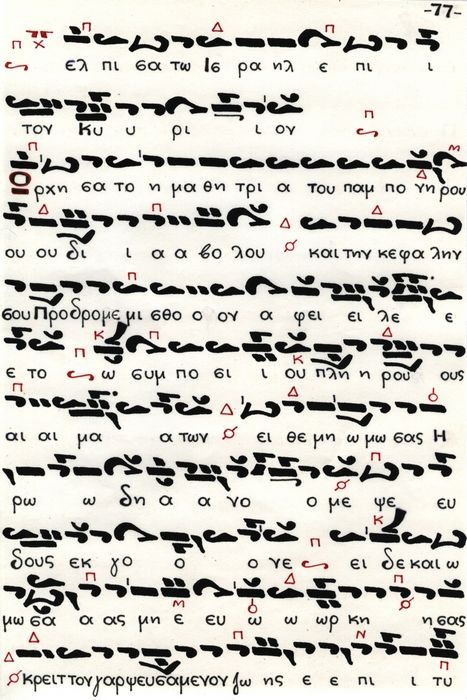 -77-
ελ πι σα τω Ισ ρα ηλ ε πι ι
τον Κυ υ ρι ι ον
Ωρχη σα το η μα θη τρι α του παμ πο νη ρου
ου ου δι ι α α βο λου και την κε φα λην
σου Προ δρο με μι σθο ο ον α φει ει λε ε
ε το ω συμ πο σι ι ου πλη η ρου ους
αι αι μα α των ει θε μη ω μω σας Η
ρω ω δη α α νο ο με ψε ευ
δους εκ γο ο ο νε ει δε και ω
μω σα α ας μη ε ευ ω ω ωρ κη η σας
κρειτ τον γαρ ψευ σα με νον ζω ης ε ε πι τυ